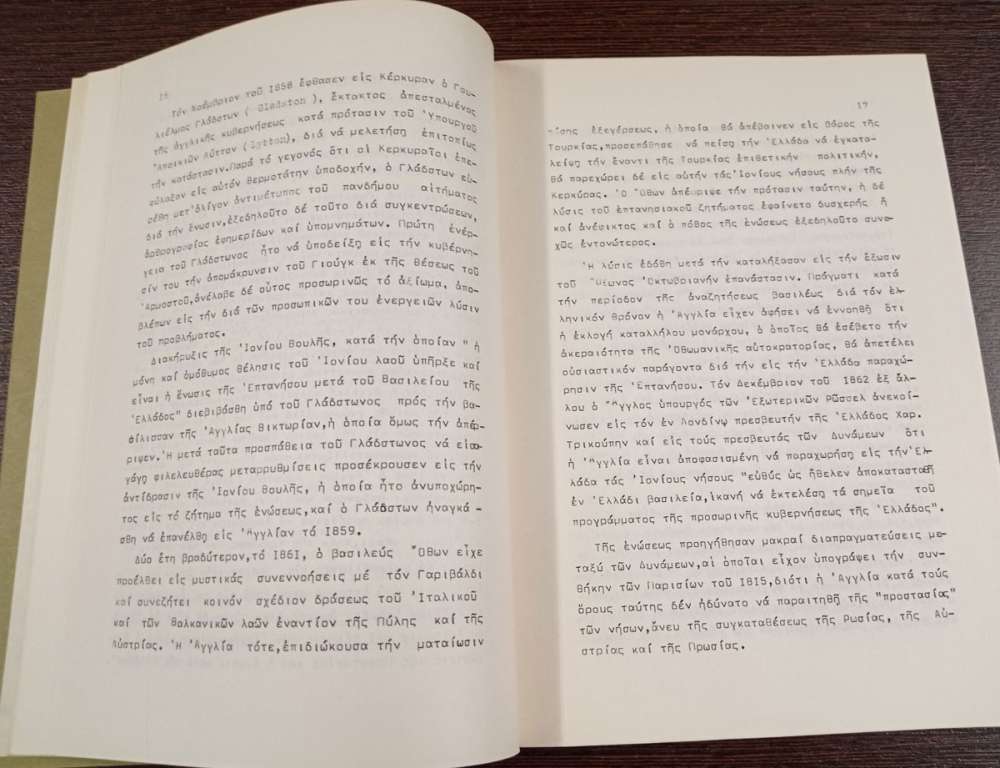 16
Τόν Νοέμβριον τοῦ 1858 ἔφθασεν εἰς Κέρκυραν ὁ Γου-
λιέλμος Γλάδστων ( Gladston ), ἔκτακτος ἀπεσταλμένος
τῆς ἀγγλικῆς κυβερνήσεως κατά πρότασιν τοῦ Ὑπουργοῦ
Ἀποικιῶν Λύττον ( Lytton), διά νά μελετήση ἐπιτοπίως
τήν κατάστασιν.Παρά τό γεγονός ὅτι οἱ Κερκυραῖοι ἐπε-
φύλαξον εἰς αὐτόν θερμοτάτην ὑποδοχήν, ὁ Γλάδστων εὑ-
ρέθη μετ'ὀλίγον ἀντιμέτωπος τοῦ πανδήμου αἰτήματος
διά τήν ἕνωσιν,ἐξεδηλοῦτο δέ τοῦτο διά συγκεντρώσεων,
ἀρθρογραφίας ἐφημερίδων καί ὑπομνημάτων. Πρώτη ἐνέρ-
γεια τοῦ Γλάδστωνος ἦτο νά ὑποδείξη εἰς τήν κυβέρνη-
σίν του τήν ἀπομάκρυνσιν τοῦ Γιούγκ ἐκ τῆς θέσεως τοῦ
Ἁρμοστοῦ,ἀνέλαβε δέ οὗτος προσωρινῶς τό ἀξίωμα, ἀπο-
βλέπων εἰς τήν διά τῶν προσωπικῶν του ἐνεργειῶν λύσιν
τοῦ προβλήματος.
Διακήρυξις τῆς Ἰονίου Βουλῆς, κατά τήν ὁποίαν " ἡ
μόνη καί ὁμόθυμος θέλησις τοῦ Ἰονίου λαοῦ ὑπῆρξε καί
εἶναι ἡ ἕνωσις τῆς Ἑπτανήσου μετά τοῦ Βασιλείου τῆς
Ἑλλάδος" διεβιβάσθη ὑπό τοῦ Γλάδστωνος πρός τήν βα-
σίλισσαν τῆς Ἀγγλίας Βικτωρίαν,ἡ ὁποία ὅμως τήν ἀπέρ-
ριψεν.Ἡ μετά ταῦτα προσπάθεια τοῦ Γλάδστωνος νά εἰσα-
γάγη φιλελευθέρας μεταρρυθμίσεις προσέκρουσεν εἰς τήν
ἀντίδρασιν τῆς Ἰονίου Βουλῆς, ἡ ὁποία ἦτο ἀνυποχώρη-
τος εἰς τό ζήτημα τῆς ἑνώσεως,καί ὁ Γλάδστων ἠναγκά -
σθη νά ἐπανέλθη εἰς Ἀγγλίαν τό 1859.
Δύο ἔτη βραδύτερον,τό 1861, ὁ βασιλεύς Ὄθων εἶχε
προέλθει εἰς μυστικάς συνεννοήσεις μέ τόν Γαριβάλδι
καί συνεζήτει κοινόν σχέδιον δράσεως τοῦ Ἰταλικοῦ
καί τῶν βαλκανικῶν λαῶν ἐναντίον τῆς Πύλης καί τῆς
Αὐστρίας. Ἡ Ἀγγλία τότε,ἐπιδιώκουσα τήν ματαίωσιν
17
-ίσης ἐξεγέρσεως, ἡ ὁποία θά ἀπέβαινεν εἰς βάρος τῆς
Τουρκίας,προσεπάθησε νά πείση τήν Ἑλλάδα νά ἐγκατα-
λείψη τήν ἔναντι τῆς Τουρκίας ἐπιθετικήν πολιτικήν,
θά παρεχώρει δέ εἰς αὐτήν τάς Ἰονίους νήσους πλήν τῆς
Κερκύρας. Ὁ Ὄθων ἀπέρριψε τήν πρότασιν ταύτην, ἡ δέ
λύσις τοῦ ἑπτανησιακοῦ ζητήματος ἐφαίνετο δυσχερής ἤ
καί ἀνέφικτος καί ὁ πόθος τῆς ἑνώσεως ἐξεδηλοῦτο συνε-
χῶς ἐντονώτερος.
Ἡ λύσις ἐδόθη μετά τήν καταλήξασαν εἰς τήν ἔξωσιν
τοῦ Ὄθωνος Ὀκτωβριανήν ἐπανάστασιν. Πράγματι κατά
τήν περίοδον τῆς ἀναζητήσεως βασιλέως διά τόν ἑλ-
ληνικόν θρόνον ἡ Ἀγγλία εἶχεν ἀφήσει νά ἐννοηθῆ ὅτι
ἡ ἐκλογή καταλλήλου μονάρχου, ὁ ὁποῖος θά ἐσέβετο τήν
ἀκεραιότητα τῆς Ὀθωμανικῆς αὐτοκρατορίας, θά ἀπετέλει
οὐσιαστικόν παράγοντα διά τήν εἰς τήν Ἑλλάδα παραχώ-
ρησιν τῆς Ἑπτανήσου. Τόν Δεκέμβριον τοῦ 1862 ἐξ ἄλ-
λου ὁ Ἄγγλος ὑπουργός τῶν Ἐξωτερικῶν Ρῶσσελ ἀνεκοί-
νωσεν εἰς τόν ἐν Λονδίνῳ πρεσβευτήν τῆς Ἑλλάδος Χαρ.
Τρικούπην καί εἰς τούς πρεσβευτάς τῶν Δυνάμεων ὅτι
ἡ Ἀγγλία εἶναι ἀποφασισμένη νά παραχωρήση εἰς τήν Ἑλ-
λάδα τάς Ἰονίους νήσους "εὐθύς ὡς ἤθελεν ἀποκατασταθῆ
ἐν Ἑλλάδι βασιλεία,ἱκανή νά ἐκτελέση τά σημεῖα τοῦ
προγράμματος τῆς προσωρινῆς κυβερνήσεως τῆς Ἑλλάδος".
Τῆς ἑνώσεως προηγήθησαν μακραί διαπραγματεύσεις με-
ταξύ τῶν Δυνάμεων,αἱ ὁποῖαι εἶχον ὑπογράψει τήν συν-
θήκην τῶν Παρισίων τοῦ 1815,διότι ἡ Ἀγγλία κατά τούς
ὅρους ταύτης δέν ἠδύνατο νά παραιτηθῆ τῆς "προστασίας"
τῶν νήσων,ἄνευ τῆς συγκαταθέσεως τῆς Ρωσίας, τῆς Αὐ-
στρίας καί τῆς Πρωσίας.